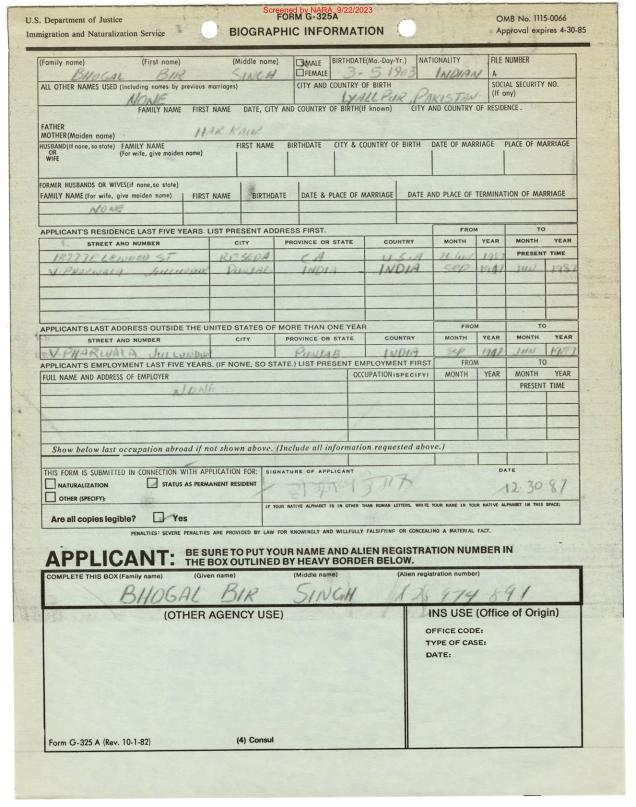 Screened by NARA, 9/22/2023
U.S. Department of Justice
Immigration and Naturalization Service
FORM G-325A
BIOGRAPHIC INFORMATION
OMB No. 1115-0066
Approval expires 4-30-85
(Family name) (First name) (Middle name) MALE FEMALE BIRTHDATE(Mo.-Day-Yr.) NATIONALITY FILE NUMBER
BHOGAL BIR SINGH 3-5 1903 INDIAN A-
ALL OTHER NAMES USED (Including names by previous marriages) CITY AND COUNTRY OF BIRTH SOCIAL SECURITY NO. (If any)
NONE LYALLPUR, PAKISTAN
FAMILY NAME FIRST NAME DATE, CITY AND COUNTRY OF BIRTH(If known) CITY AND COUNTRY OF RESIDENCE.
FATHER
MOTHER(Maiden name) HAR KAUR
HUSBAND(If none, so state) OR WIFE FAMILY NAME (For wife, give maiden name) FIRST NAME BIRTHDATE CITY & COUNTRY OF BIRTH DATE OF MARRIAGE PLACE OF MARRIAGE
FORMER HUSBANDS OR WIVES(if none, so state)
FAMILY NAME (For wife, give maiden name) FIRST NAME BIRTHDATE DATE & PLACE OF MARRIAGE DATE AND PLACE OF TERMINATION OF MARRIAGE
NONE
APPLICANT'S RESIDENCE LAST FIVE YEARS. LIST PRESENT ADDRESS FIRST. FROM TO
STREET AND NUMBER CITY PROVINCE OR STATE COUNTRY MONTH YEAR MONTH YEAR
ST RESEDA CA U.S.A PRESENT TIME
V-PHARWALA JULLUNDUR PUNJAB INDIA - INDIA SEP 1947 JUN 1987
APPLICANT'S LAST ADDRESS OUTSIDE THE UNITED STATES OF MORE THAN ONE YEAR FROM TO
STREET AND NUMBER CITY PROVINCE OR STATE COUNTRY MONTH YEAR MONTH YEAR
V-PHARWALA JULLUNDUR PUNJAB INDIA SEP 1947 JUN 1987
APPLICANT'S EMPLOYMENT LAST FIVE YEARS. (IF NONE, SO STATE.) LIST PRESENT EMPLOYMENT FIRST FROM TO
FULL NAME AND ADDRESS OF EMPLOYER OCCUPATION(SPECIFY) MONTH YEAR MONTH YEAR
NONE PRESENT TIME
Show below last occupation abroad if not shown above. (Include all information requested above.)
THIS FORM IS SUBMITTED IN CONNECTION WITH APPLICATION FOR: SIGNATURE OF APPLICANT DATE
NATURALIZATION STATUS AS PERMANENT RESIDENT 12.30.87
OTHER (SPECIFY):
IF YOUR NATIVE ALPHABET IS IN OTHER THAN ROMAN LETTERS, WRITE YOUR NAME IN YOUR NATIVE ALPHABET IN THIS SPACE:
Are all copies legible? Yes
PENALTIES: SEVERE PENALTIES ARE PROVIDED BY LAW FOR KNOWINGLY AND WILLFULLY FALSIFYING OR CONCEALING A MATERIAL FACT.
APPLICANT: BE SURE TO PUT YOUR NAME AND ALIEN REGISTRATION NUMBER IN
THE BOX OUTLINED BY HEAVY BORDER BELOW.
COMPLETE THIS BOX (Family name) (Given name) (Middle name) (Alien registration number)
BHOGAL BIR SINGH A28 974 891
(OTHER AGENCY USE) INS USE (Office of Origin)
OFFICE CODE:
TYPE OF CASE:
DATE:
Form G-325 A (Rev. 10-1-82) (4) Consul